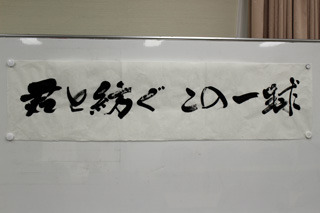 君と紡ぐ この一球